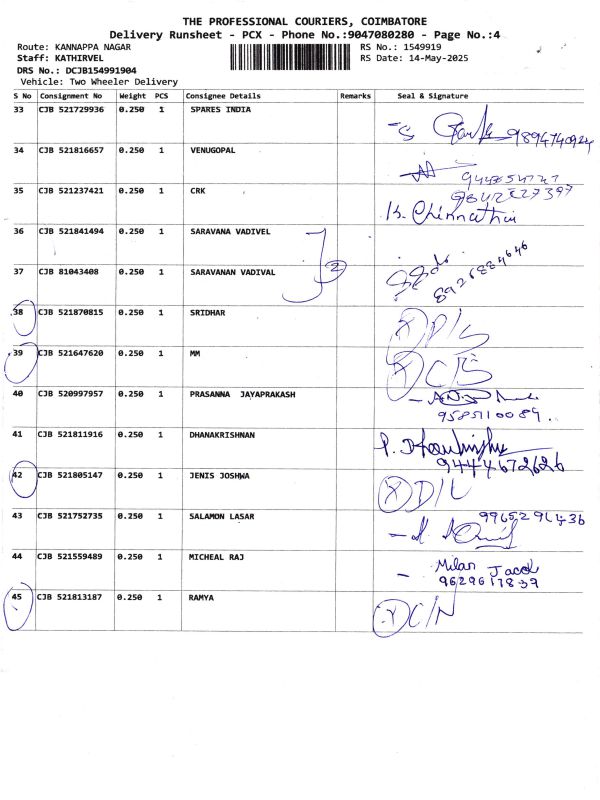 THE PROFESSIONAL COURIERS, COIMBATORE
Delivery Runsheet - PCX - Phone No.:9047080280 - Page No.:4
Route: KANNAPPA NAGAR RS No.: 1549919
Staff: KATHIRVEL RS Date: 14-May-2025
DRS No.: DCJB154991904
Vehicle: Two Wheeler Delivery
S No Consignment No Weight PCS Consignee Details Remarks Seal & Signature
33 CJB 521729936 0.250 1 SPARES INDIA
9894740924
34 CJB 521816657 0.250 1 VENUGOPAL
35 CJB 521237421 0.250 1 CRK
K. Chinnathai
36 CJB 521841494 0.250 1 SARAVANA VADIVEL
2
37 CJB 81043408 0.250 1 SARAVANAN VADIVAL
8926884646
38 CJB 521870815 0.250 1 SRIDHAR X D/S
39 CJB 521647620 0.250 1 MM X C/S
40 CJB 520997957 0.250 1 PRASANNA JAYAPRAKASH
9585110089.
41 CJB 521811916 0.250 1 DHANAKRISHNAN
9444672626
42 CJB 521805147 0.250 1 JENIS JOSHWA X D/L
43 CJB 521752735 0.250 1 SALAMON LASAR
44 CJB 521559489 0.250 1 MICHEAL RAJ
Milan Jacob
9629617839
45 CJB 521813187 0.250 1 RAMYA X C/N